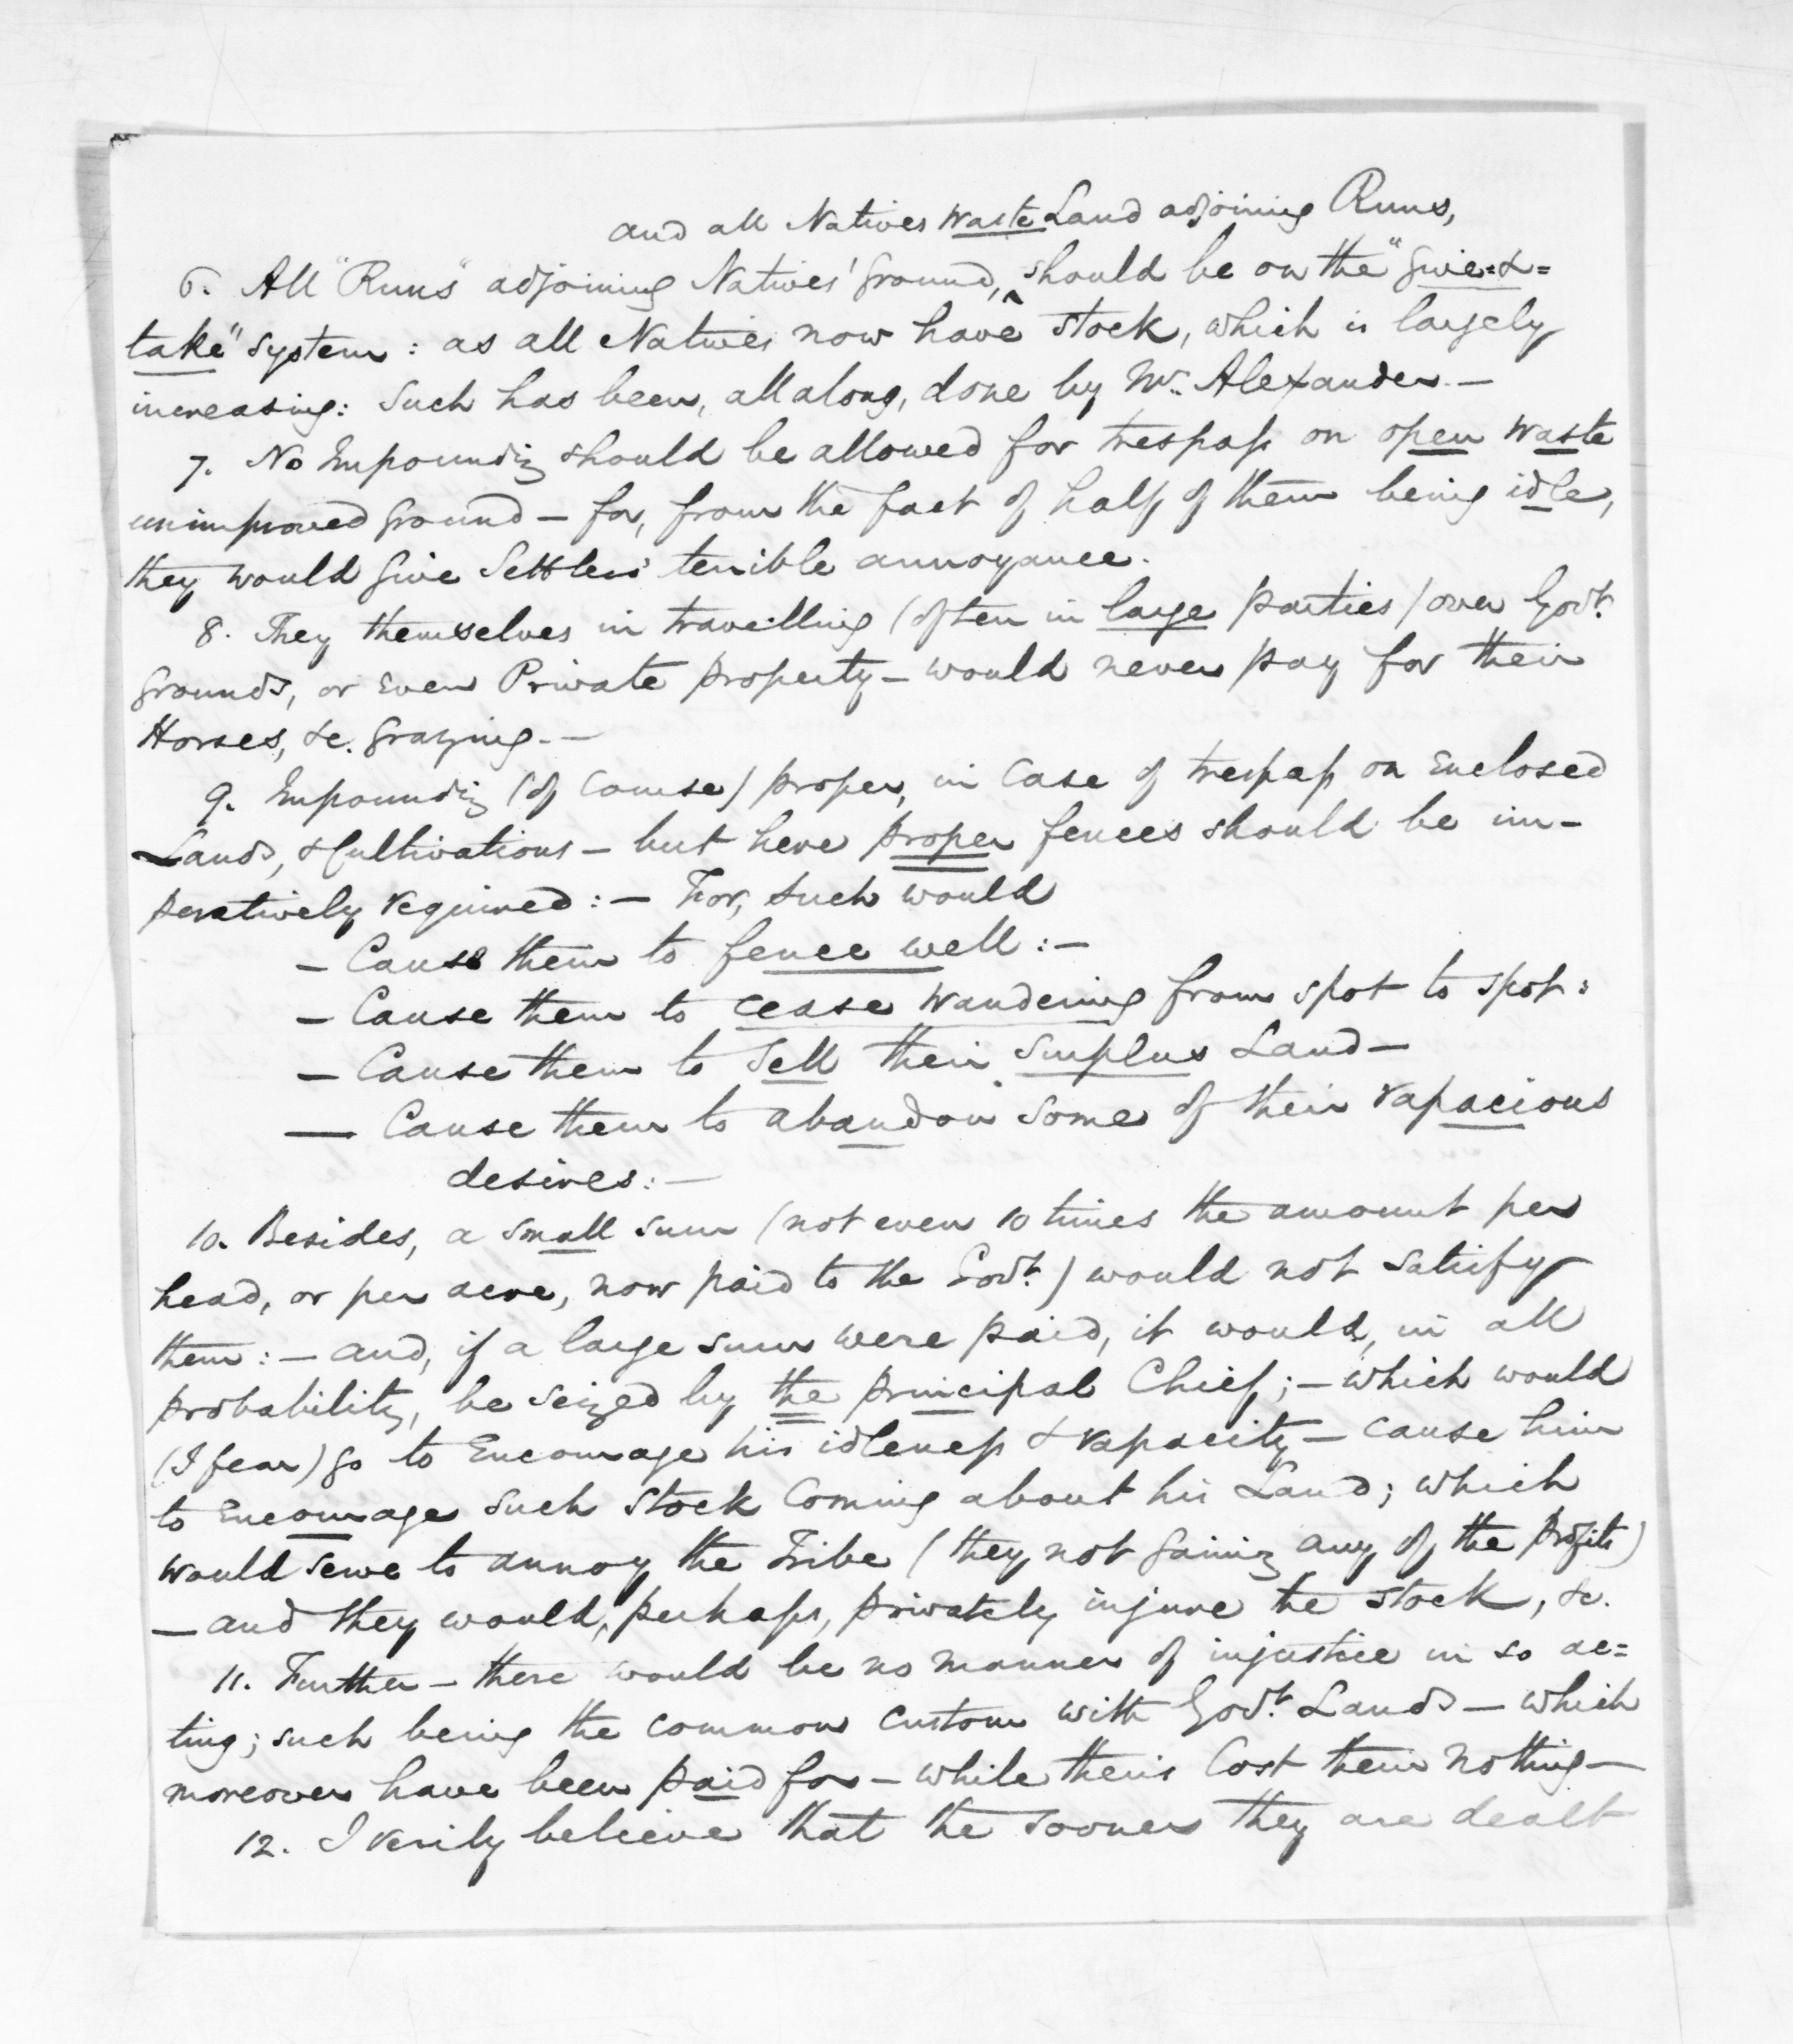 and all Natives waste Land adjoining Runs,
6. All "Runs" adjoining Natives' ground, ^ should be on the "give-&-
take" system: as all Natives now have stock, which is largely
increasing: Such has been, all along, done by Mr. Alexander.—
7. No Impounding should be allowed for trespass on open waste
unimproved ground — for, from the fact of half of them being idle,
they would give Settlers terrible annoyance.
8. They themselves in travelling (often in large parties) over Govt.
grounds, or even Private property — would never pay for their
Horses, &c. grazing.—
9. Impounding (of course) proper, in case of trespass on Enclosed
Lands, & Cultivations — but here proper fences should be im-
peratively required:— For, such would
— Cause them to fence well:—
— Cause them to cease wandering from spot to spot:
— Cause them to sell their surplus Land —
— Cause them to abandon some of their rapacious
desires:—
10. Besides, a small sum (not even 10 times the amount per
head, or per acre, now paid to the Govt.) would not satisfy
them:— and, if a large sum were paid, it would, in all
probability, be seized by the principal Chief;— which would
(I fear) go to Encourage his idleness & rapacity — cause him
to encourage such stock coming about his Land; which
would serve to annoy the Tribe (they not gaining any of the profits)
— and they would, perhaps, privately injure the stock, &c.
11. Further — there would be no manner of injustice in so ac=
ting; such being the common custom with Govt. Lands — which
moreover have been paid for — while theirs cost them nothing —
12. I verily believe that the sooner they are dealt